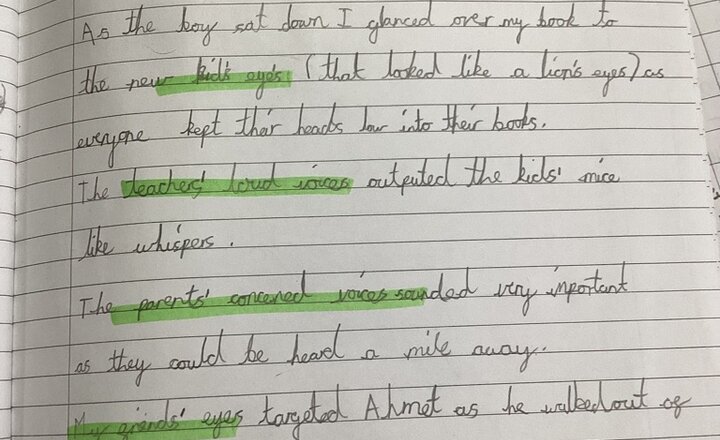 As the boy sat down I glanced over my book to
the new kid's eye's (that looked like a lion's eyes) as
everyone kept their heads low into their books.
The teachers' loud voices outputed the kids' mice
like whispers.
The parents' concened voices sounded very important
as they could be heard a mile away.
My friends' eyes targeted Ahmet as he walked out of